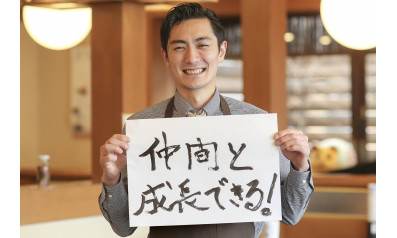 仲間と
成長できる!